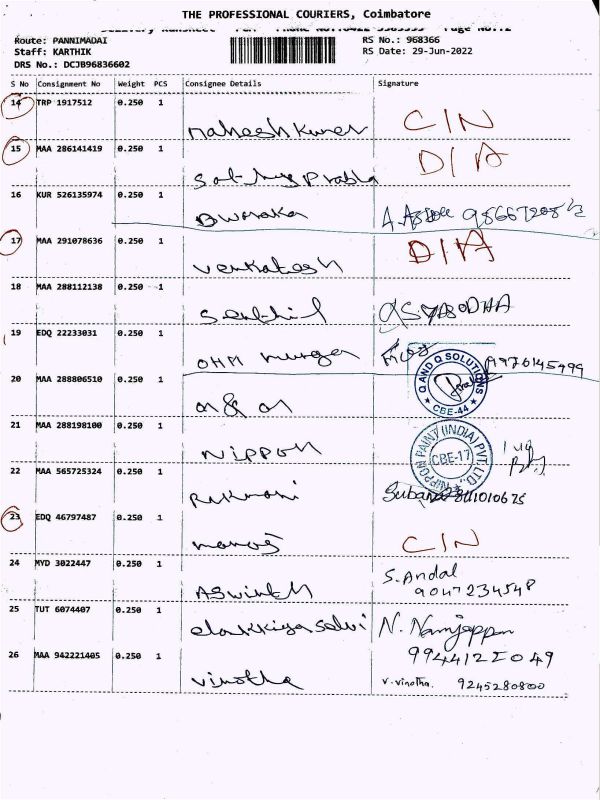 THE PROFESSIONAL COURIERS, Coimbatore
Page No.:2
Route: PANNIMADAI RS No.: 968366
Staff: KARTHIK RS Date: 29-Jun-2022
DRS No.: DCJB96836602
S No Consignment No Weight PCS Consignee Details Signature
14 TRP 1917512 0.250 1 maheshkumar CIN
15 MAA 286141419 0.250 1 D/A
16 KUR 526135974 0.250 1 Dwaraka
17 MAA 291078636 0.250 1 venkatesh D/A
18 MAA 288112138 0.250 1 Senthil YASODHA
19 EDQ 22233031 0.250 1 OHM murga
20 MAA 288806510 0.250 1 Q AND Q SOLUTIONS CBE-44
21 MAA 288198100 0.250 1 Nippon NIPPON PAINT (INDIA) PVT. LTD. CBE-17
22 MAA 565725324 0.250 1 Rukmani
23 EDQ 46797487 0.250 1 manoj CIN
24 MYD 3022447 0.250 1 Aswinth S. Andal
9047234548
25 TUT 6074407 0.250 1 elakkiya selvi N. Nanjappan
26 MAA 942221405 0.250 1 vinotha v. vinotha. 9245280800